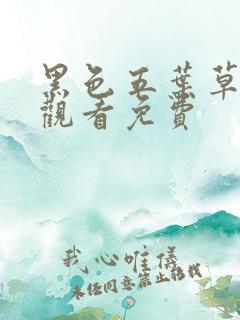 黑色五葉草
觀看免費
我心唯儀
未經同意禁止轉載